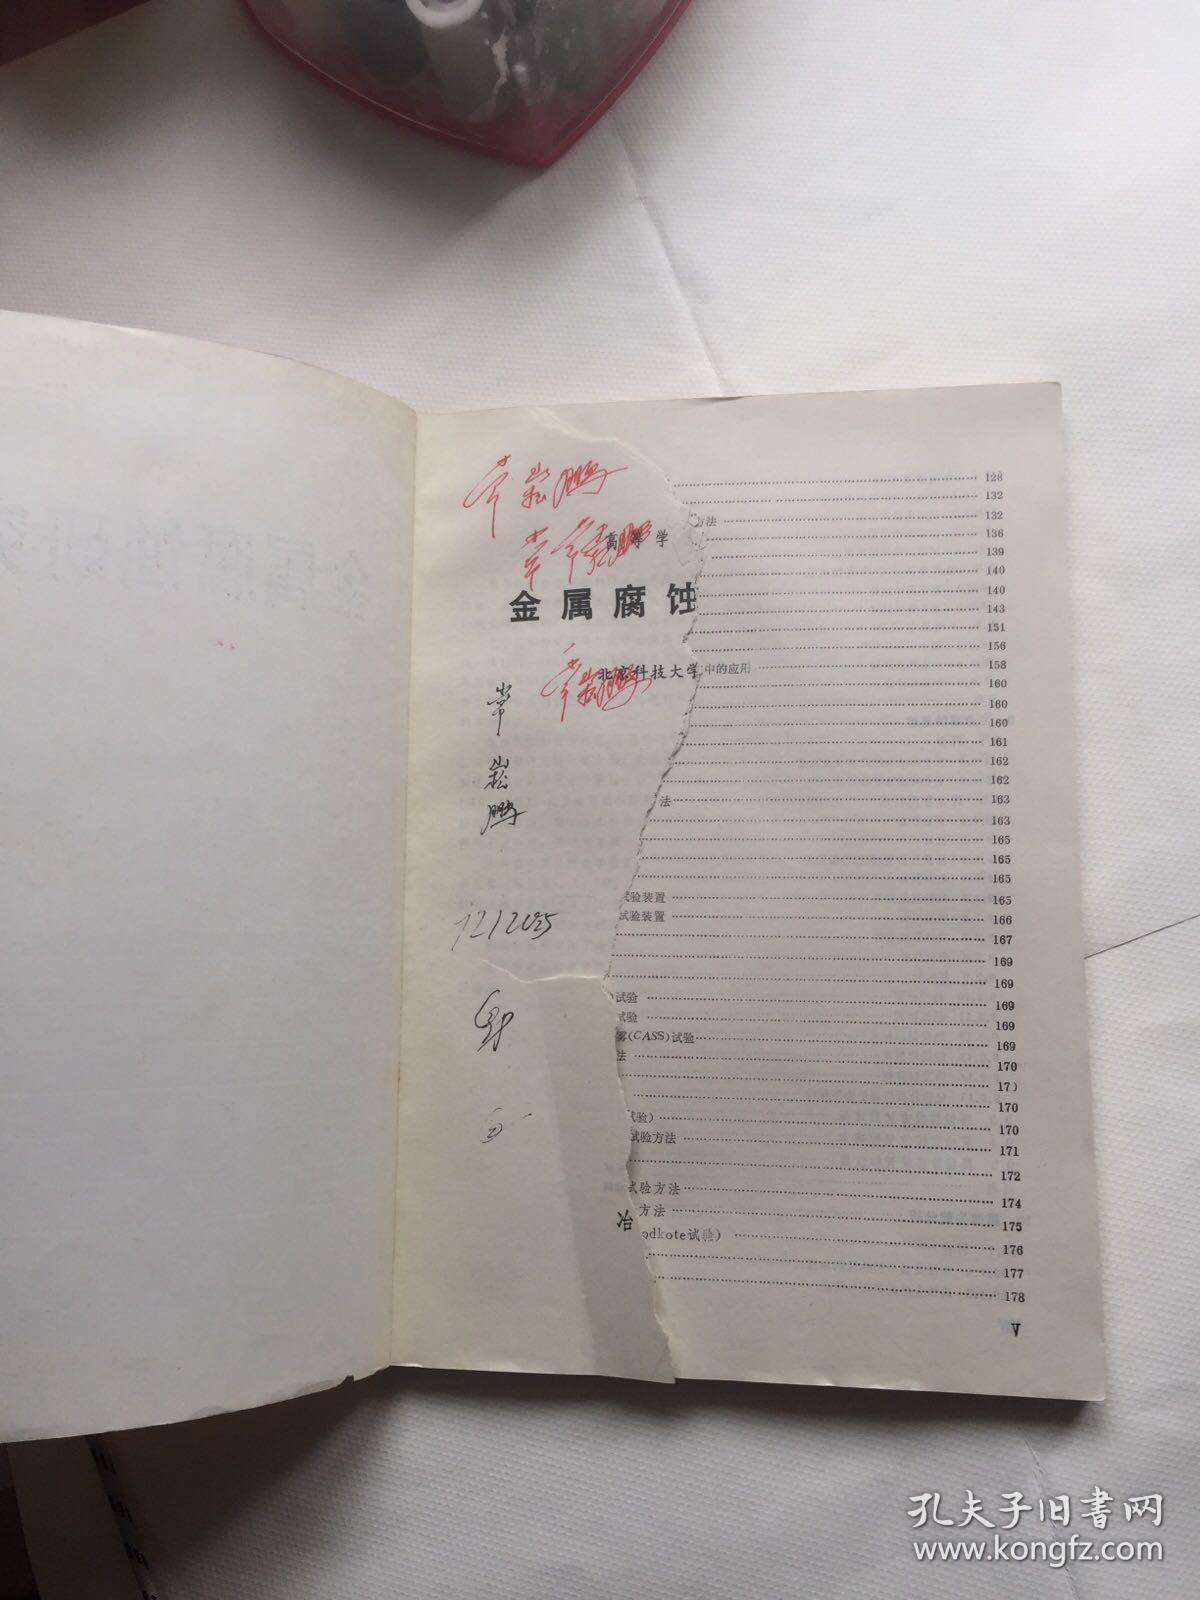 常崧鹏
高等学
金属腐蚀
北京科技大学
常崧鹏
常
崧
鹏
冶
128
132
方法 132
136
139
140
140
143
151
156
中的应用 158
160
160
160
161
162
162
法 163
163
165
165
165
试验装置 165
试验装置 166
167
169
169
试验 169
试验 169
雾(CASS)试验 169
法 170
17)
170
试验) 170
试验方法 171
172
试验方法 174
方法 175
odkote试验) 176
177
178
V
孔夫子旧书网
www.kongfz.com